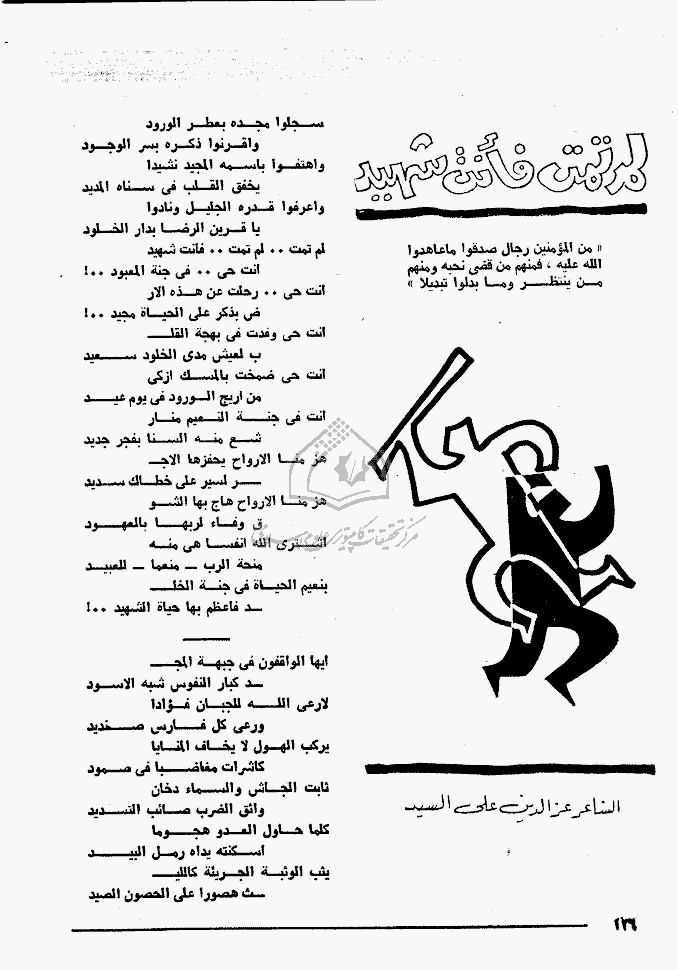 لم تمت فأنت شهيد
« من المؤمنين رجال صدقوا ماعاهدوا
الله عليه ، فمنهم من قضى نحبه ومنهم
مـن ينتظـر ومـا بدلوا تبديلا »
الشاعر عز الدين على السيد
سـجلوا مجـده بعطـر الورود
واقـرنوا ذكـره بسر الوجـود
واهتفـوا باسـمه المجيد نشيدا
يخفق القلـب فى سـناه المديد
واعرفوا قـدره الجليـل ونادوا
يا قـرين الرضـا بدار الخلود
لم تمت ٠٠ لم تمت ٠٠ فانت شهيد
انت حى ٠٠ فى جنة المعبود ٠٠!
انت حى ٠٠ رحلت عن هـذه الار
ض بذكر على الحيـاة مجيد ٠٠!
انت حى وفدت فى بهجة القلـ
ب لعيش مدى الخلود سـعيد
انت حى ضمخت بالمسـك ازكى
من اريج الـورود فى يوم عيـد
انت فى جنـة النـعيم منـار
شـع منـه السـنا بفجر جديد
هز منـا الارواح يحفزها الاجـ
ـر لسير على خطـاك سـديد
هز منـا الارواح هاج بها الشـو
ق وفـاء لربهـا بالعهـود
اشـترى الله انفسـا هى منـه
منحة الرب ـ منعما ـ للعبيـد
بنعيم الحيـاة فى جنـة الخلـ
ـد فاعظم بها حياة الشهيد ٠٠!
ايها الواقفون فى جبهـة المجـ
ـد كبار النفوس شبه الاسـود
لارعى اللـه للجبـان فـؤادا
ورعى كل فـارس صـنديد
يركب الهـول لا يخـاف المنـايا
كاشرات مغاضبـا فى صـمود
ثابت الجـاش والسـماء دخان
واثق الضرب صـائب التسـديد
كلما حـاول العدو هجـوما
اسـكنته يداه رمـل البيـد
يثب الوثبـة الجـريئة كالليـ
ـث هصورا على الحصون الصيد
٢٣٦
مركز تحقيقات كامپيوتری علوم اسلامی